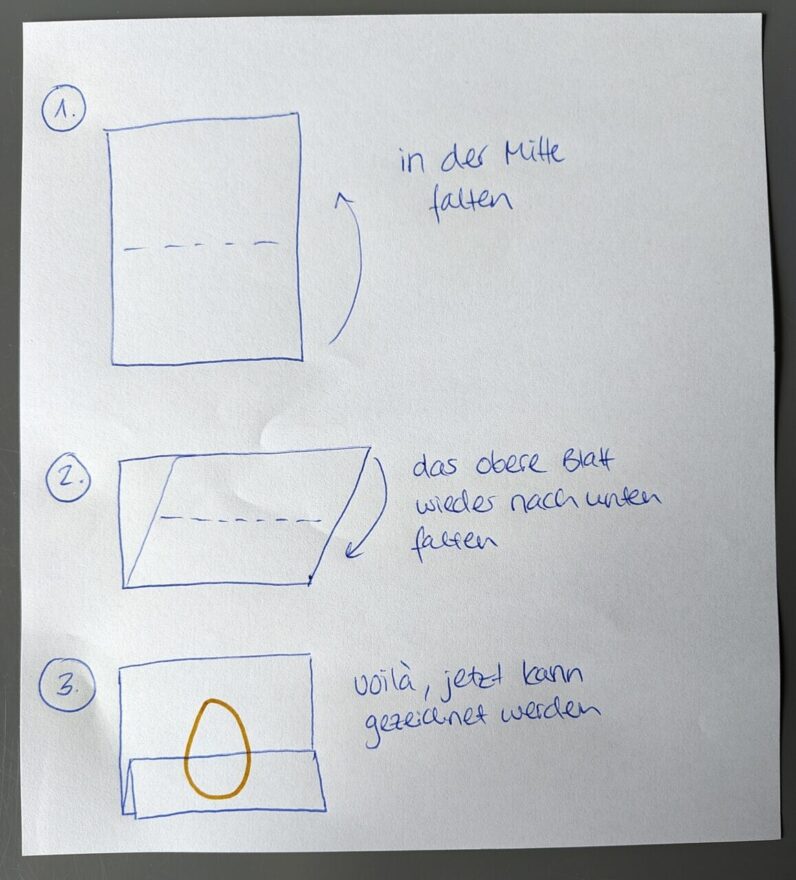 1.
in der Mitte
falten
2.
das obere Blatt
wieder nach unten
falten
3.
voilà, jetzt kann
gezeichnet werden